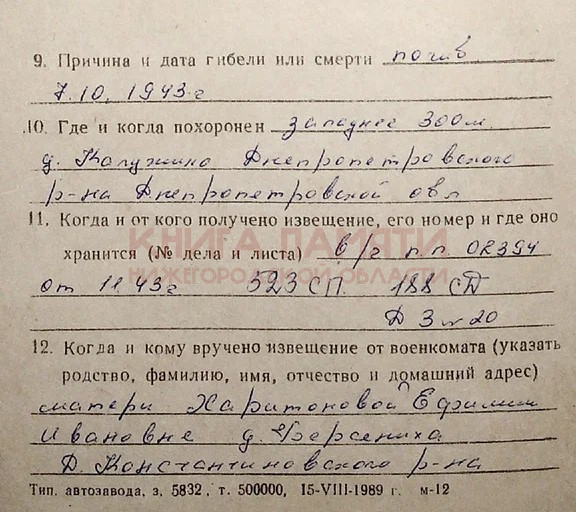 9. Причина и дата гибели или смерти погиб
7.10.1943 г
10. Где и когда похоронен западнее 300м
д. Калужино Днепропетровского
р-на Днепропетровской обл
11. Когда и от кого получено извещение, его номер и где оно
хранится (№ дела и листа) в/ч п.п 02394
КНИГА ПАМЯТИ
НИЖЕГОРОДСКОЙ ОБЛАСТИ
от 11.43г 523 СП. 188 СД
Д 3 л 20
12. Когда и кому вручено извещение от военкомата (указать
родство, фамилию, имя, отчество и домашний адрес)
матери Харитоновой Ефимии
Ивановне д.
Д. Константиновского р-на
Тип. автозавода, з. 5832, т. 500000, 15-VIII-1989 г. м-12